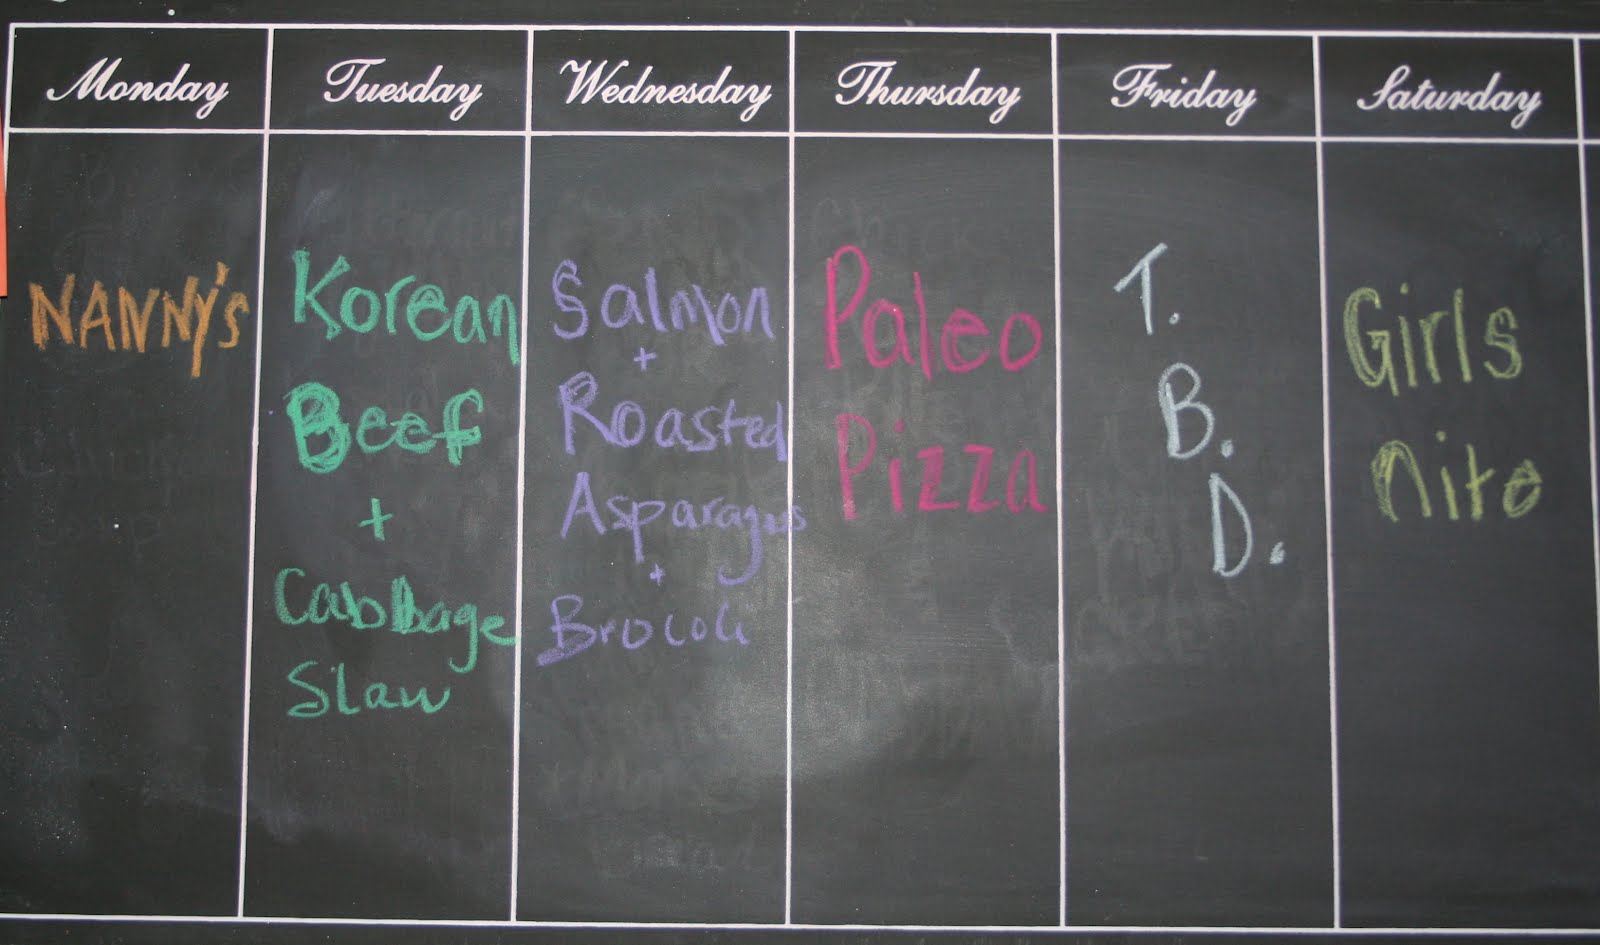 Monday Tuesday Wednesday Thursday Friday Saturday
NANNY's
Korean
Beef
+
Cabbage
Slaw
Salmon
+
Roasted
Asparagus
+
Brocoli
Paleo
Pizza
T.
B.
D.
Girls
nite